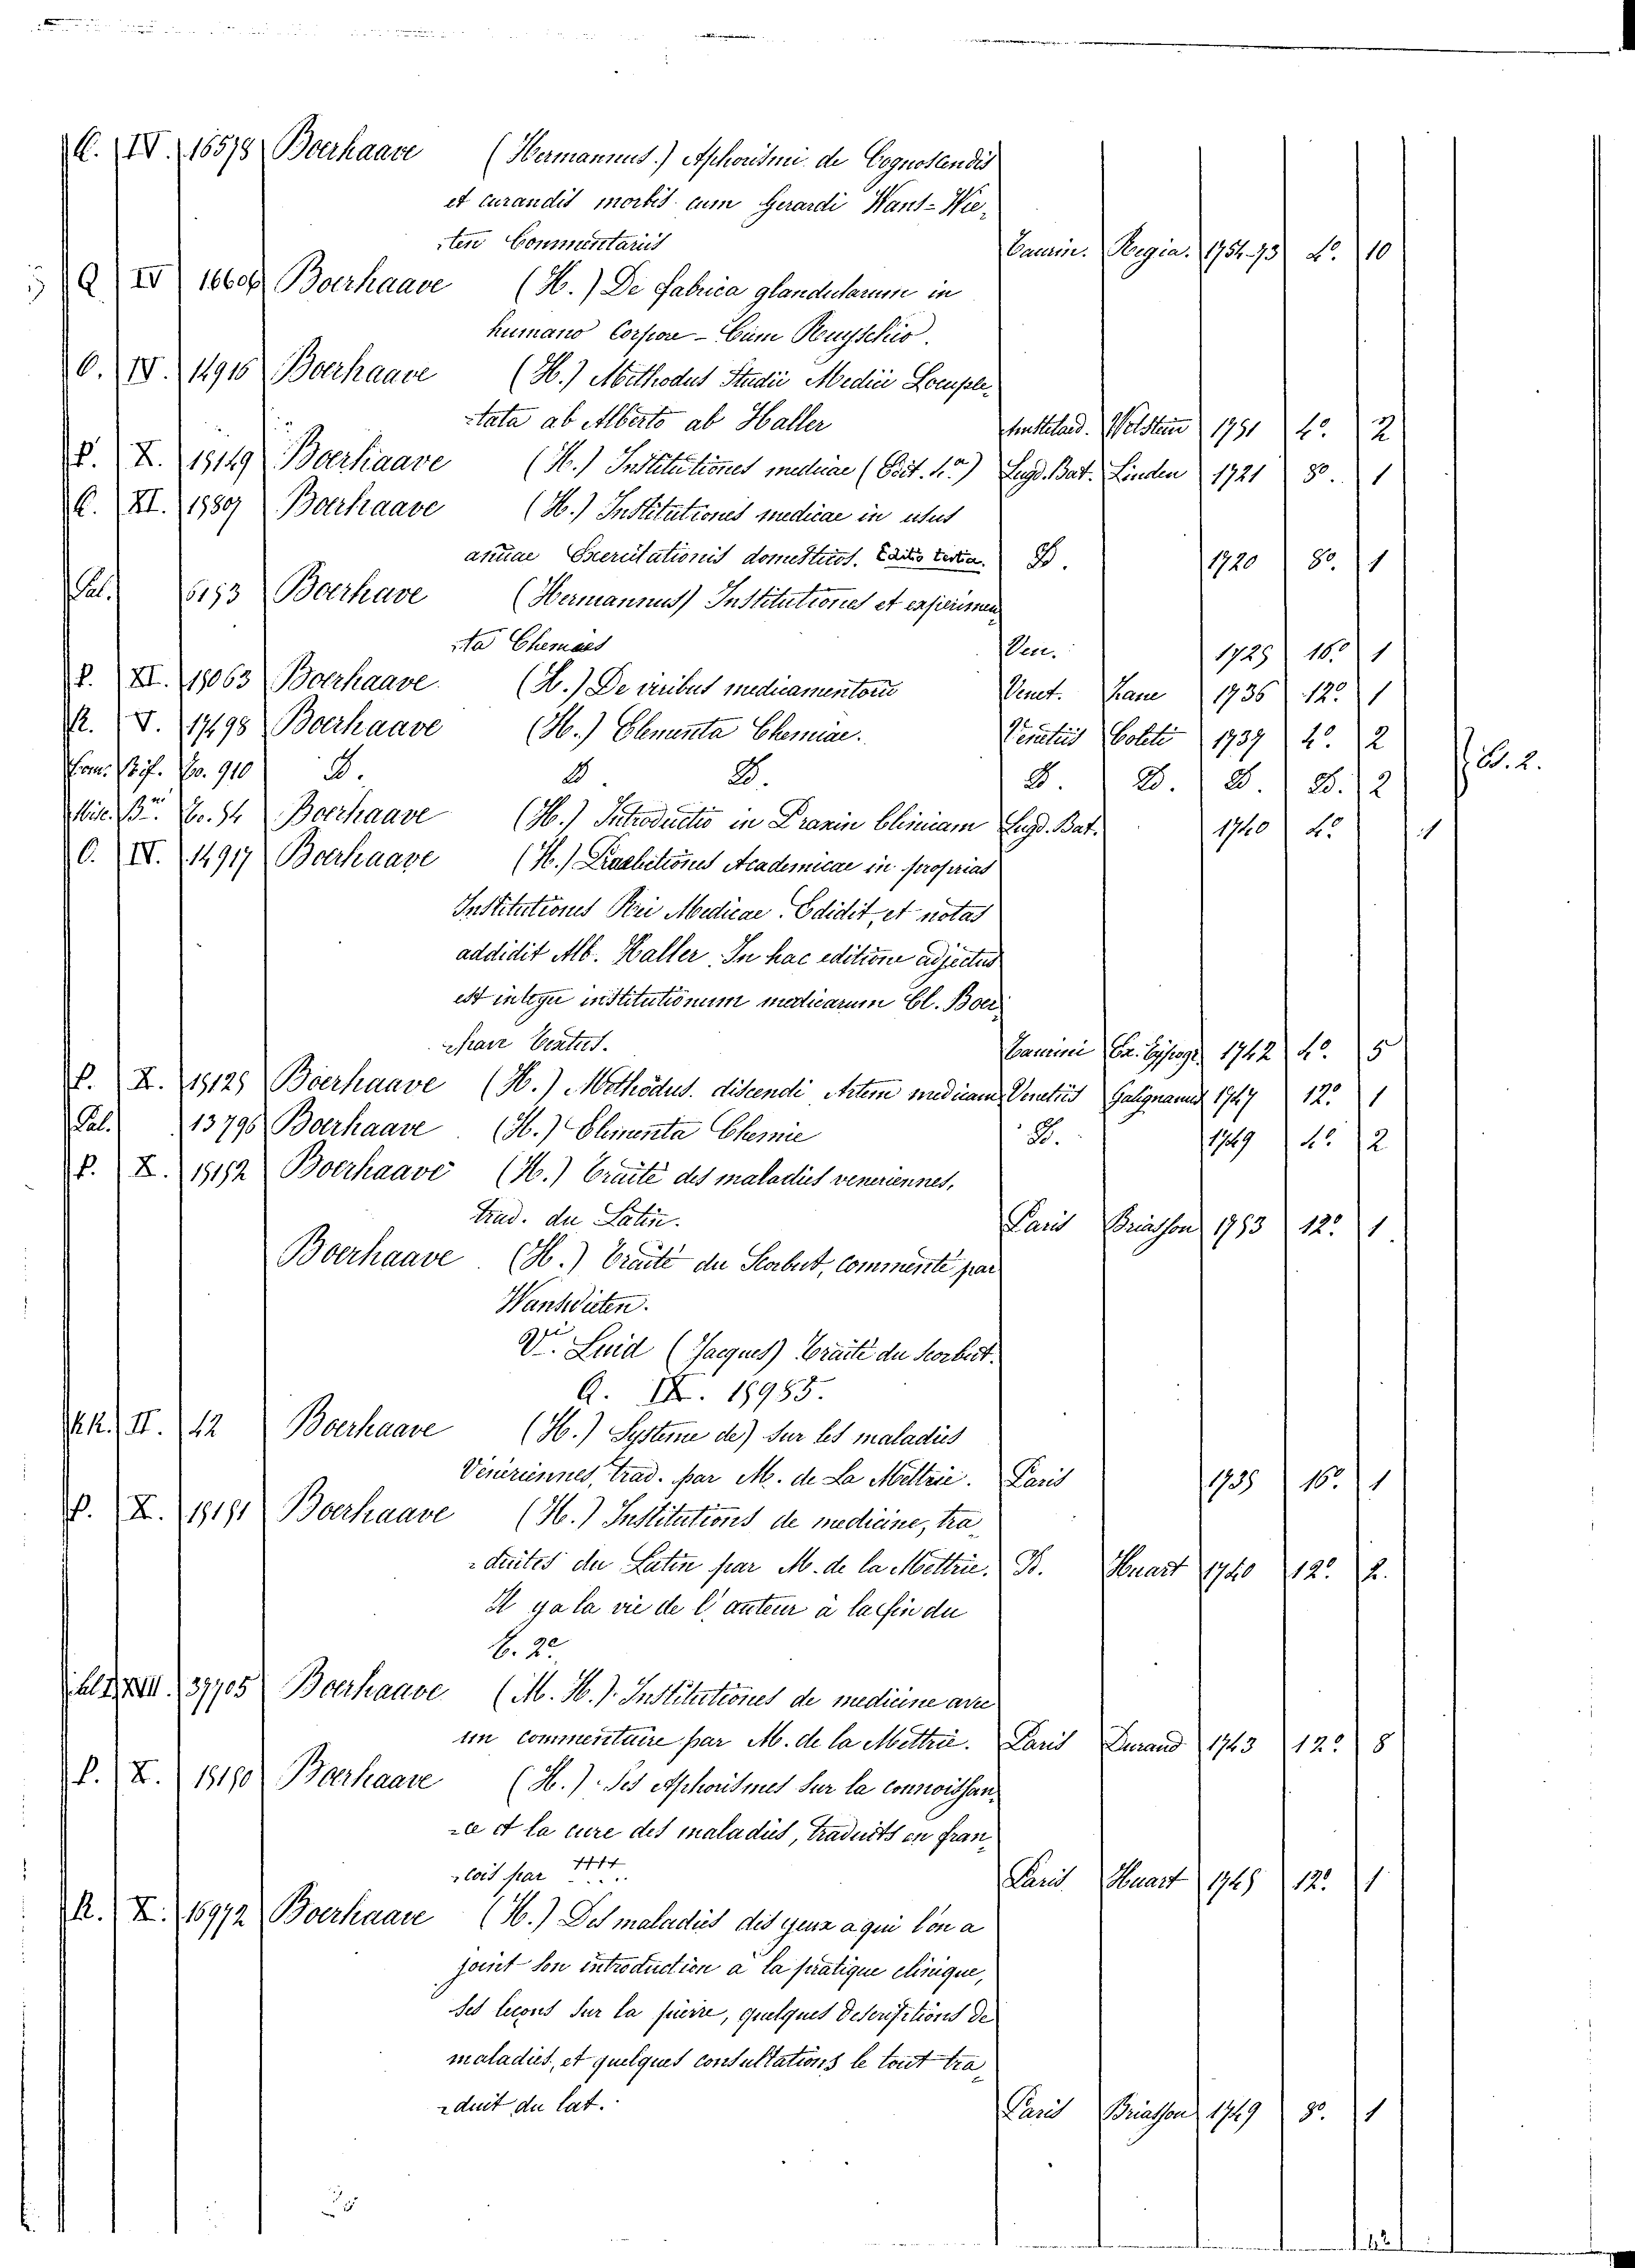 C. IV. 16578 Boerhaave (Hermannus.) Aphorismi de Cognoscendis
et curandis morbis cum Gerardi Wans-Wie-
-ten Commentariis Taurin. Regia. 1754-73 4º. 10
Q IV 16606 Boerhaave (H.) De fabrica glandularum in
humano Corpore - Cum Ruyschio.
O. IV. 14916 Boerhaave (H.) Methodus Studii Medici Locuple-
-tata ab Alberto ab Haller Amstelaed. Welstein 1751 4º. 2
P. X. 15149 Boerhaave (H.) Institutiones medicae (Edit. 4.ª) Lugd. Bat. Linden 1721 8º. 1
C. XI. 1889 Boerhaave (H.) Institutiones medicae in usus
anuae Exercitationis domesticos. Editio tertia. D. 1720 8º. 1
Pal. 6153 Boerhave (Hermannus) Institutiones et experimen-
-ta Chemaes Ven. 1729 16º 1
P. XI. 18063 Boerhaave (H.) De viribus medicamentoru Venet. 1736 12º. 1
R. V. 17498 Boerhaave (H.) Elementa Chemiae. Venetiis Coleti 1737 4º. 2
Com. Bif. Vo. 910 D. D. D. D. D. D. D. 2
Mis. Bⁿ. Vo. 54 Boerhaave (H.) Introductio in Praxin cliniam Lugd. Bat. 1740 4º 1
O. IV. 14917 Boerhaave (H.) Praelectiones Academicae in proprias
Institutiones Rei Medicae. Edidit, et notas
addidit Alb. Haller. In hac editione adjectus
est integer institutionum medicarum Cl. Boer-
-havi textus. Taurini 1742 4º. 5
P. X. 15125 Boerhaave (H.) Methodus discendi Artem medicam Venetiis Galignanus 1747 12º 1
Pal. 13796 Boerhaave (H.) Elimenta Chemie D. 1749 4º. 2
P. X. 15152 Boerhaave (H.) Traité des maladies veneriennes,
trad. du Latin. Paris Briasson 1753 12º 1.
Boerhaave (H.) Traité du Scorbut, commenté par
Wanswieten.
Vi. Luid (Jacques) Traité du Scorbut.
Q. IX. 18985.
KK. II. 42 Boerhaave (H.) Systeme de) sur les maladies
Vénériennes, trad. par M. de La Mettrie. Paris 1735 16º. 1
P. X. 15151 Boerhaave (H.) Institutions de medicine, tra-
-duites du Latin par M. de la Mettrie. D. Huart 1740 12º. 2.
Il ya la vie de l'auteur à la fin du
t. 2º.
XVIII. 39705 Boerhaave (M. H.). Institutiones de medicine avec
un commentaire par M. de la Mettrie. Paris Durand 1743 12º. 8
P. X. 15150 Boerhaave (H.) Ses Aphorismes sur la connoissan-
-ce et la cure des maladies, traduits en fran-
-cois par ++++ Paris Huart 1745 12º. 1
R. X. 16972 Boerhaave (H.) Des maladies dis yeux a qui l'on a
joint son introduction à la pratique clinique,
ses leçons sur la pierre, quelques descriptions de
maladies, et quelques consultations le tout tra-
-duit du lat. Paris Briasson 1749 8º. 1